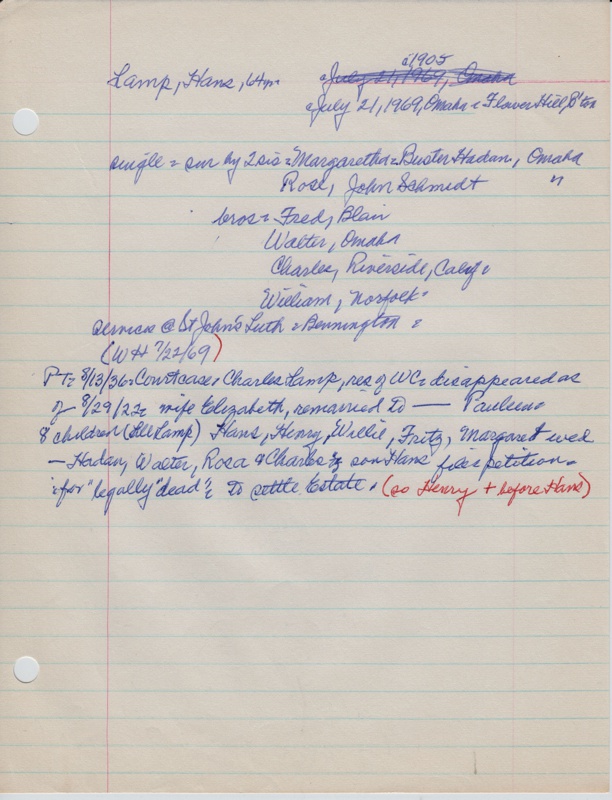 c1905
Lamp, Hans, 64 yr. c July 21, 1969, Omaha
c July 21, 1969, Omaha = Flower Hill, B'ton
single = sur by 2 sis = Margaretha = Buster Hadan, Omaha
Rose, John Schmidt "
bros = Fred, Blair
Walter, Omaha
Charles, Riverside, Calif.
William, Norfolk.
services @ St John's Luth = Bennington =
(WH 7/22/69)
PT = 8/13/36 = Court case, Charles Lamp, res of WC = disappeared as
of 8/29/22 = wife Elizabeth, remarried to — Paulsen
8 children (All Lamp) Hans, Henry, Willie, Fritz, Margaret wed
— Hadan, Walter, Rosa & Charles = son Hans files petition =
for "legally "dead" = to settle Estate. (so Henry + before Hans)